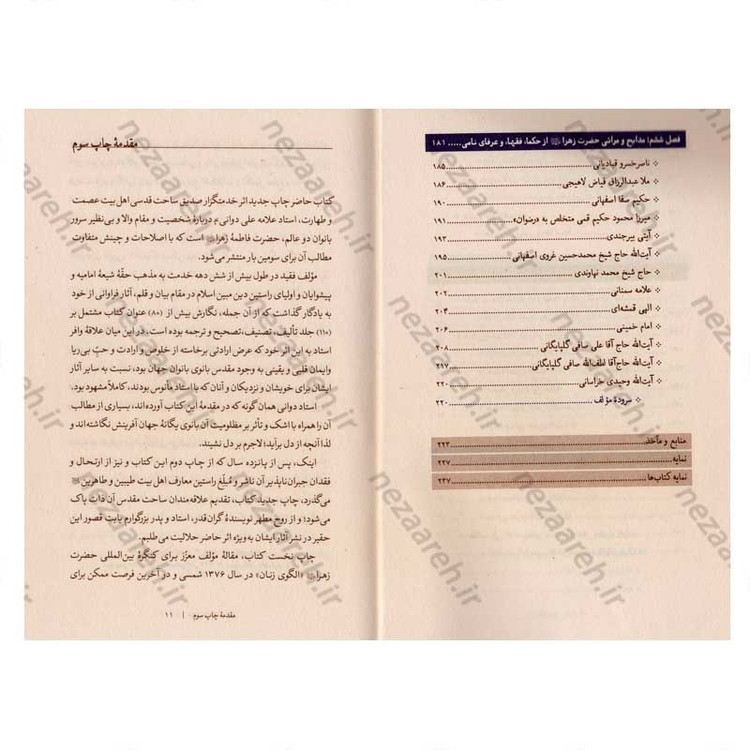 فصل ششم: مدایح و مراثی حضرت زهرا از حکما، فقها، و عرفای نامی ..... ۱۸۱
ناصرخسرو قبادیانی ..... ۱۸۵
ملا عبدالرزاق فیاض لاهیجی ..... ۱۸۶
حکیم سقا اصفهانی ..... ۱۹۰
میرزا محمود حکیم قمی متخلص به «رضوان» ..... ۱۹۱
آیتی بیرجندی ..... ۱۹۳
آیت‌الله حاج شیخ محمدحسین غروی اصفهانی ..... ۱۹۵
حاج شیخ محمد نهاوندی ..... ۲۰۱
علامه سمنانی ..... ۲۰۲
الهی قمشه‌ای ..... ۲۰۴
امام خمینی ..... ۲۰۶
آیت‌الله حاج آقا علی صافی گلپایگانی ..... ۲۰۸
آیت‌الله حاج آقا لطف‌الله صافی گلپایگانی ..... ۲۱۷
آیت‌الله وحیدی خراسانی ..... ۲۲۰
سرودهٔ مؤلف ..... ۲۲۰
منابع و مآخذ ..... ۲۲۳
نمایه ..... ۲۲۷
نمایه کتاب‌ها ..... ۲۳۷
مقدمهٔ چاپ سوم
کتاب حاضر چاپ جدید اثر خدمتگزار صدیق ساحت قدسی اهل بیت عصمت
و طهارت، استاد علامه علی دوانی دربارهٔ شخصیت و مقام والا و بی‌نظیر سرور
بانوان دو عالم، حضرت فاطمهٔ زهرا است که با اصلاحات و چینش متفاوت
مطالب آن برای سومین بار منتشر می‌شود.
مؤلف فقید در طول بیش از شش دهه خدمت به مذهب حقّهٔ شیعهٔ امامیه و
پیشوایان و اولیای راستین دین مبین اسلام در مقام بیان و قلم، آثار فراوانی از خود
به یادگار گذاشت که از آن جمله، نگارش بیش از (۸۰) عنوان کتاب مشتمل بر
(۱۱۰) جلد تألیف، تصنیف، تصحیح و ترجمه بوده است. در این میان علاقهٔ وافر
استاد به این اثر خود که عرض ارادتی برخاسته از خلوص و ارادت و حبّ بی‌ریا
و ایمان قلبی و یقینی به وجود مقدس بانوی بانوان جهان بود، نسبت به سایر آثار
ایشان برای خویشان و نزدیکان و آنان که با استاد مأنوس بودند، کاملاً مشهود بود.
استاد دوانی همان گونه که در مقدمهٔ این کتاب آورده‌اند، بسیاری از مطالب
آن را همراه با اشک و تأثر بر مظلومیت آن بانوی یگانهٔ جهان آفرینش نگاشته‌اند و
لذا آنچه از دل برآید؛ لاجرم بر دل نشیند.
اینک، پس از پانزده سال که از چاپ دوم این کتاب و نیز از ارتحال و
فقدان جبران‌ناپذیر آن ناشر و مُبلّغ راستین معارف اهل بیت طیبین و طاهرین
می‌گذرد، چاپ جدید کتاب، تقدیم علاقه‌مندان ساحت مقدس آن ذات پاک
می‌شود؛ و از روح مطهر نویسندهٔ گران‌قدر، استاد و پدر بزرگوارم بابت قصور این
حقیر در نشر آثار ایشان به ویژه اثر حاضر حلالیت می‌طلبم.
چاپ نخست کتاب، مقالهٔ مؤلف معزّز برای کنگرهٔ بین‌المللی حضرت
زهرا «الگوی زنان» در سال ۱۳۷۶ شمسی و در آخرین فرصت ممکن برای
مقدمهٔ چاپ سوم | ۱۱
nezaareh.ir